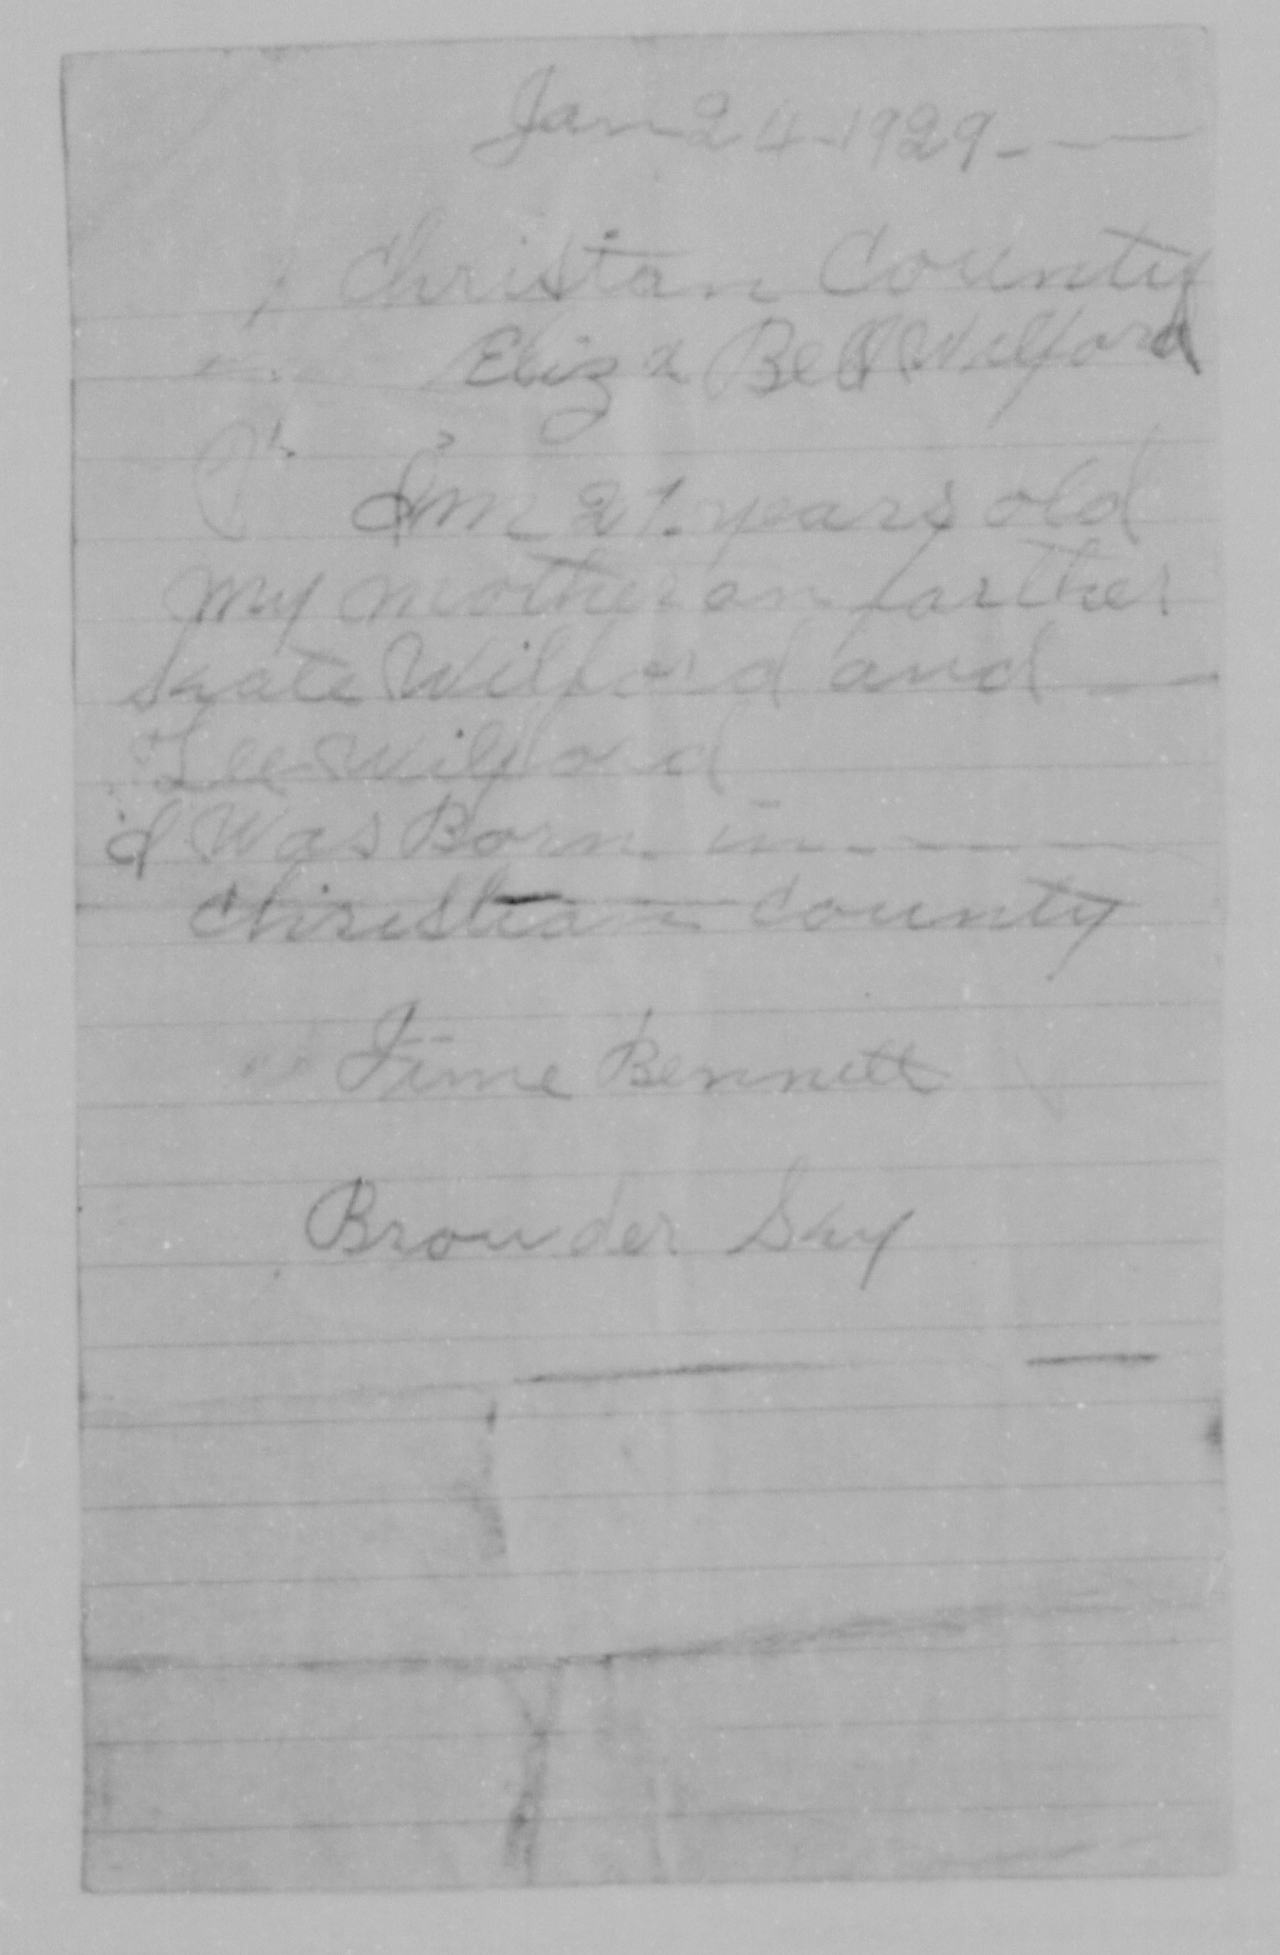 Jan 24 1929
Christan County
Eliza Bell Wilford
I'm 21 years old
my mother an farther
Skate Wilford and
Lee Wilford
I Was Born in
Christian County
Jime Bennett
Browder Sky